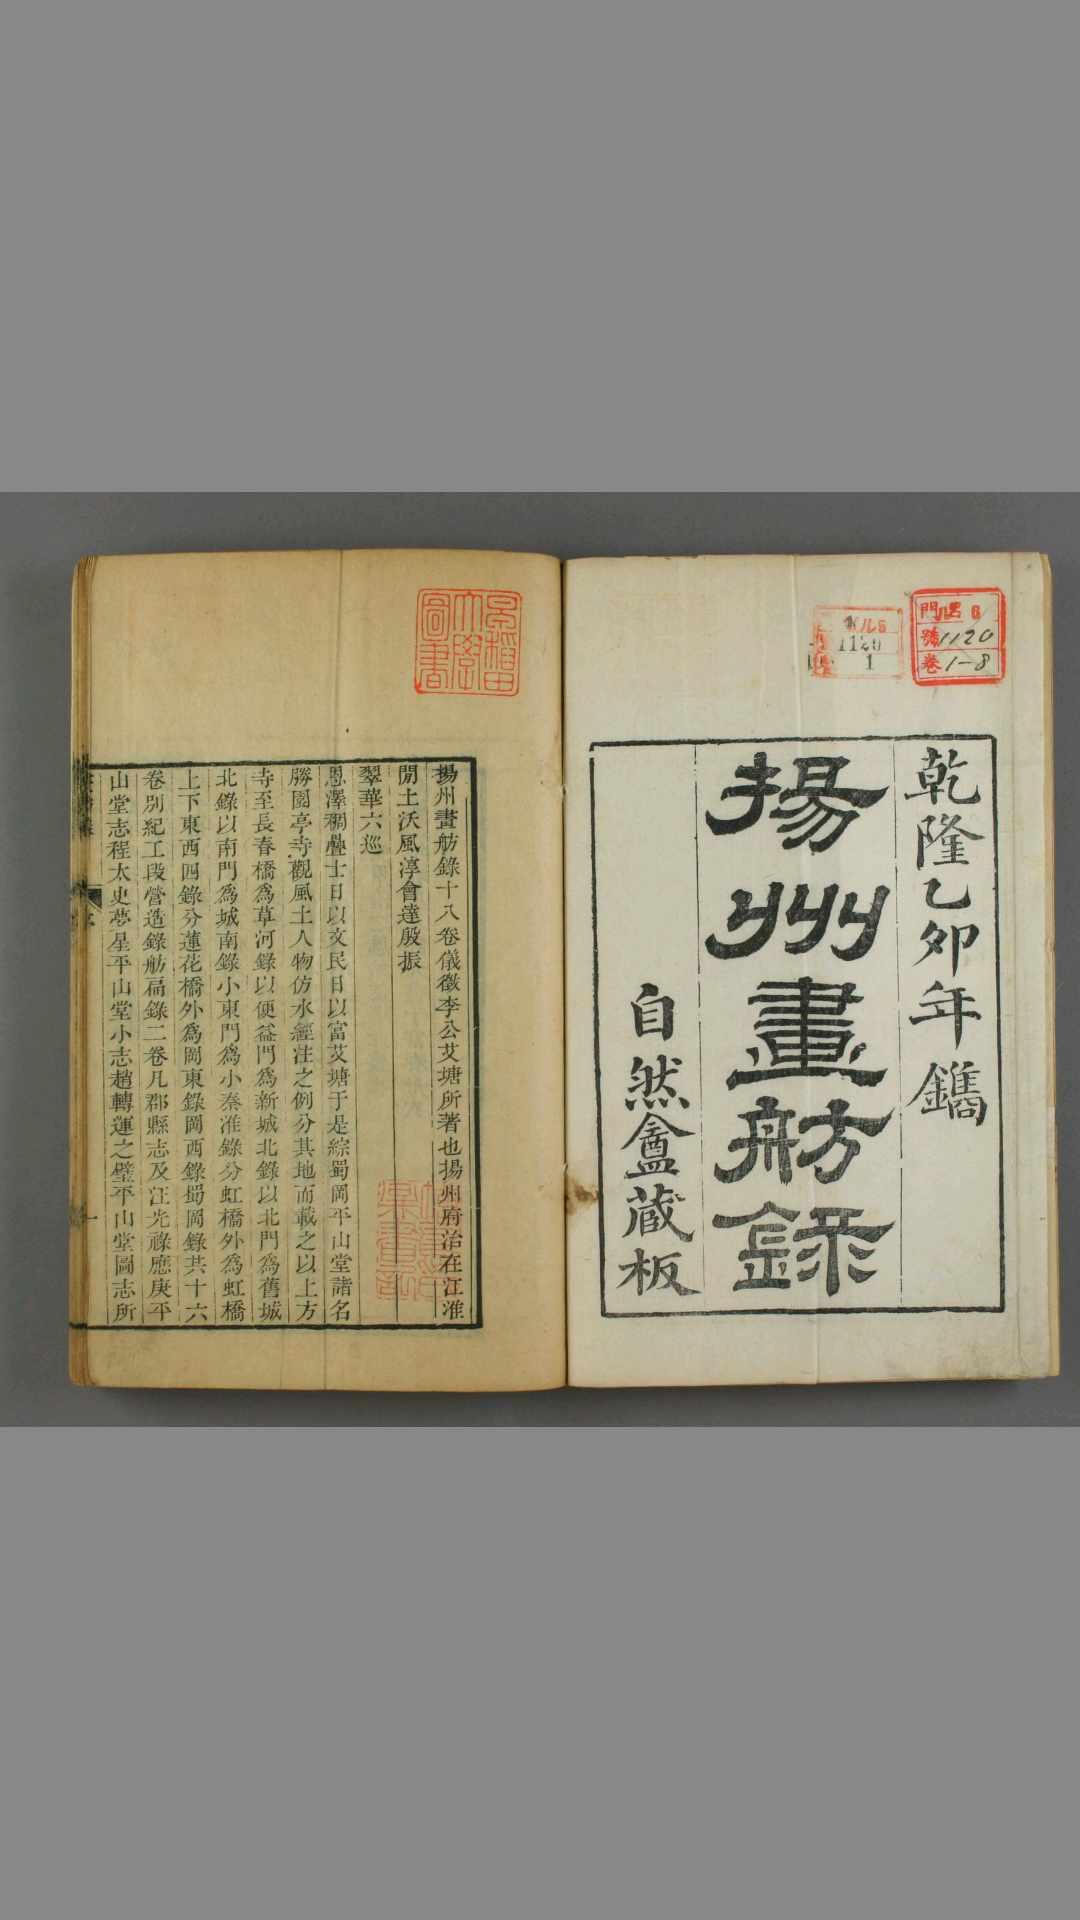 乾隆乙卯年鐫
揚州畫舫錄
自然盦藏板
門 ル 6
號 1120
卷 1-8
ル5
1120
1
早稲田
大學
圖書
揚州畫舫錄十八卷儀徵李公艾塘所著也揚州府治在江淮
閒土沃風淳會達殷振
翠華六巡
恩澤稠疊士日以文民日以富艾塘于是綜蜀岡平山堂諸名
勝園亭寺觀風土人物仿水經注之例分其地而載之以上方
寺至長春橋爲草河錄以便益門爲新城北錄以北門爲舊城
北錄以南門爲城南錄小東門爲小秦淮錄分虹橋外爲虹橋
上下東西四錄分蓮花橋外爲岡東錄岡西錄蜀岡錄共十六
卷別紀工段營造錄舫扁錄二卷凡郡縣志及汪光祿應庚平
山堂志程太史夢星平山堂小志趙轉運之璧平山堂圖志所
一